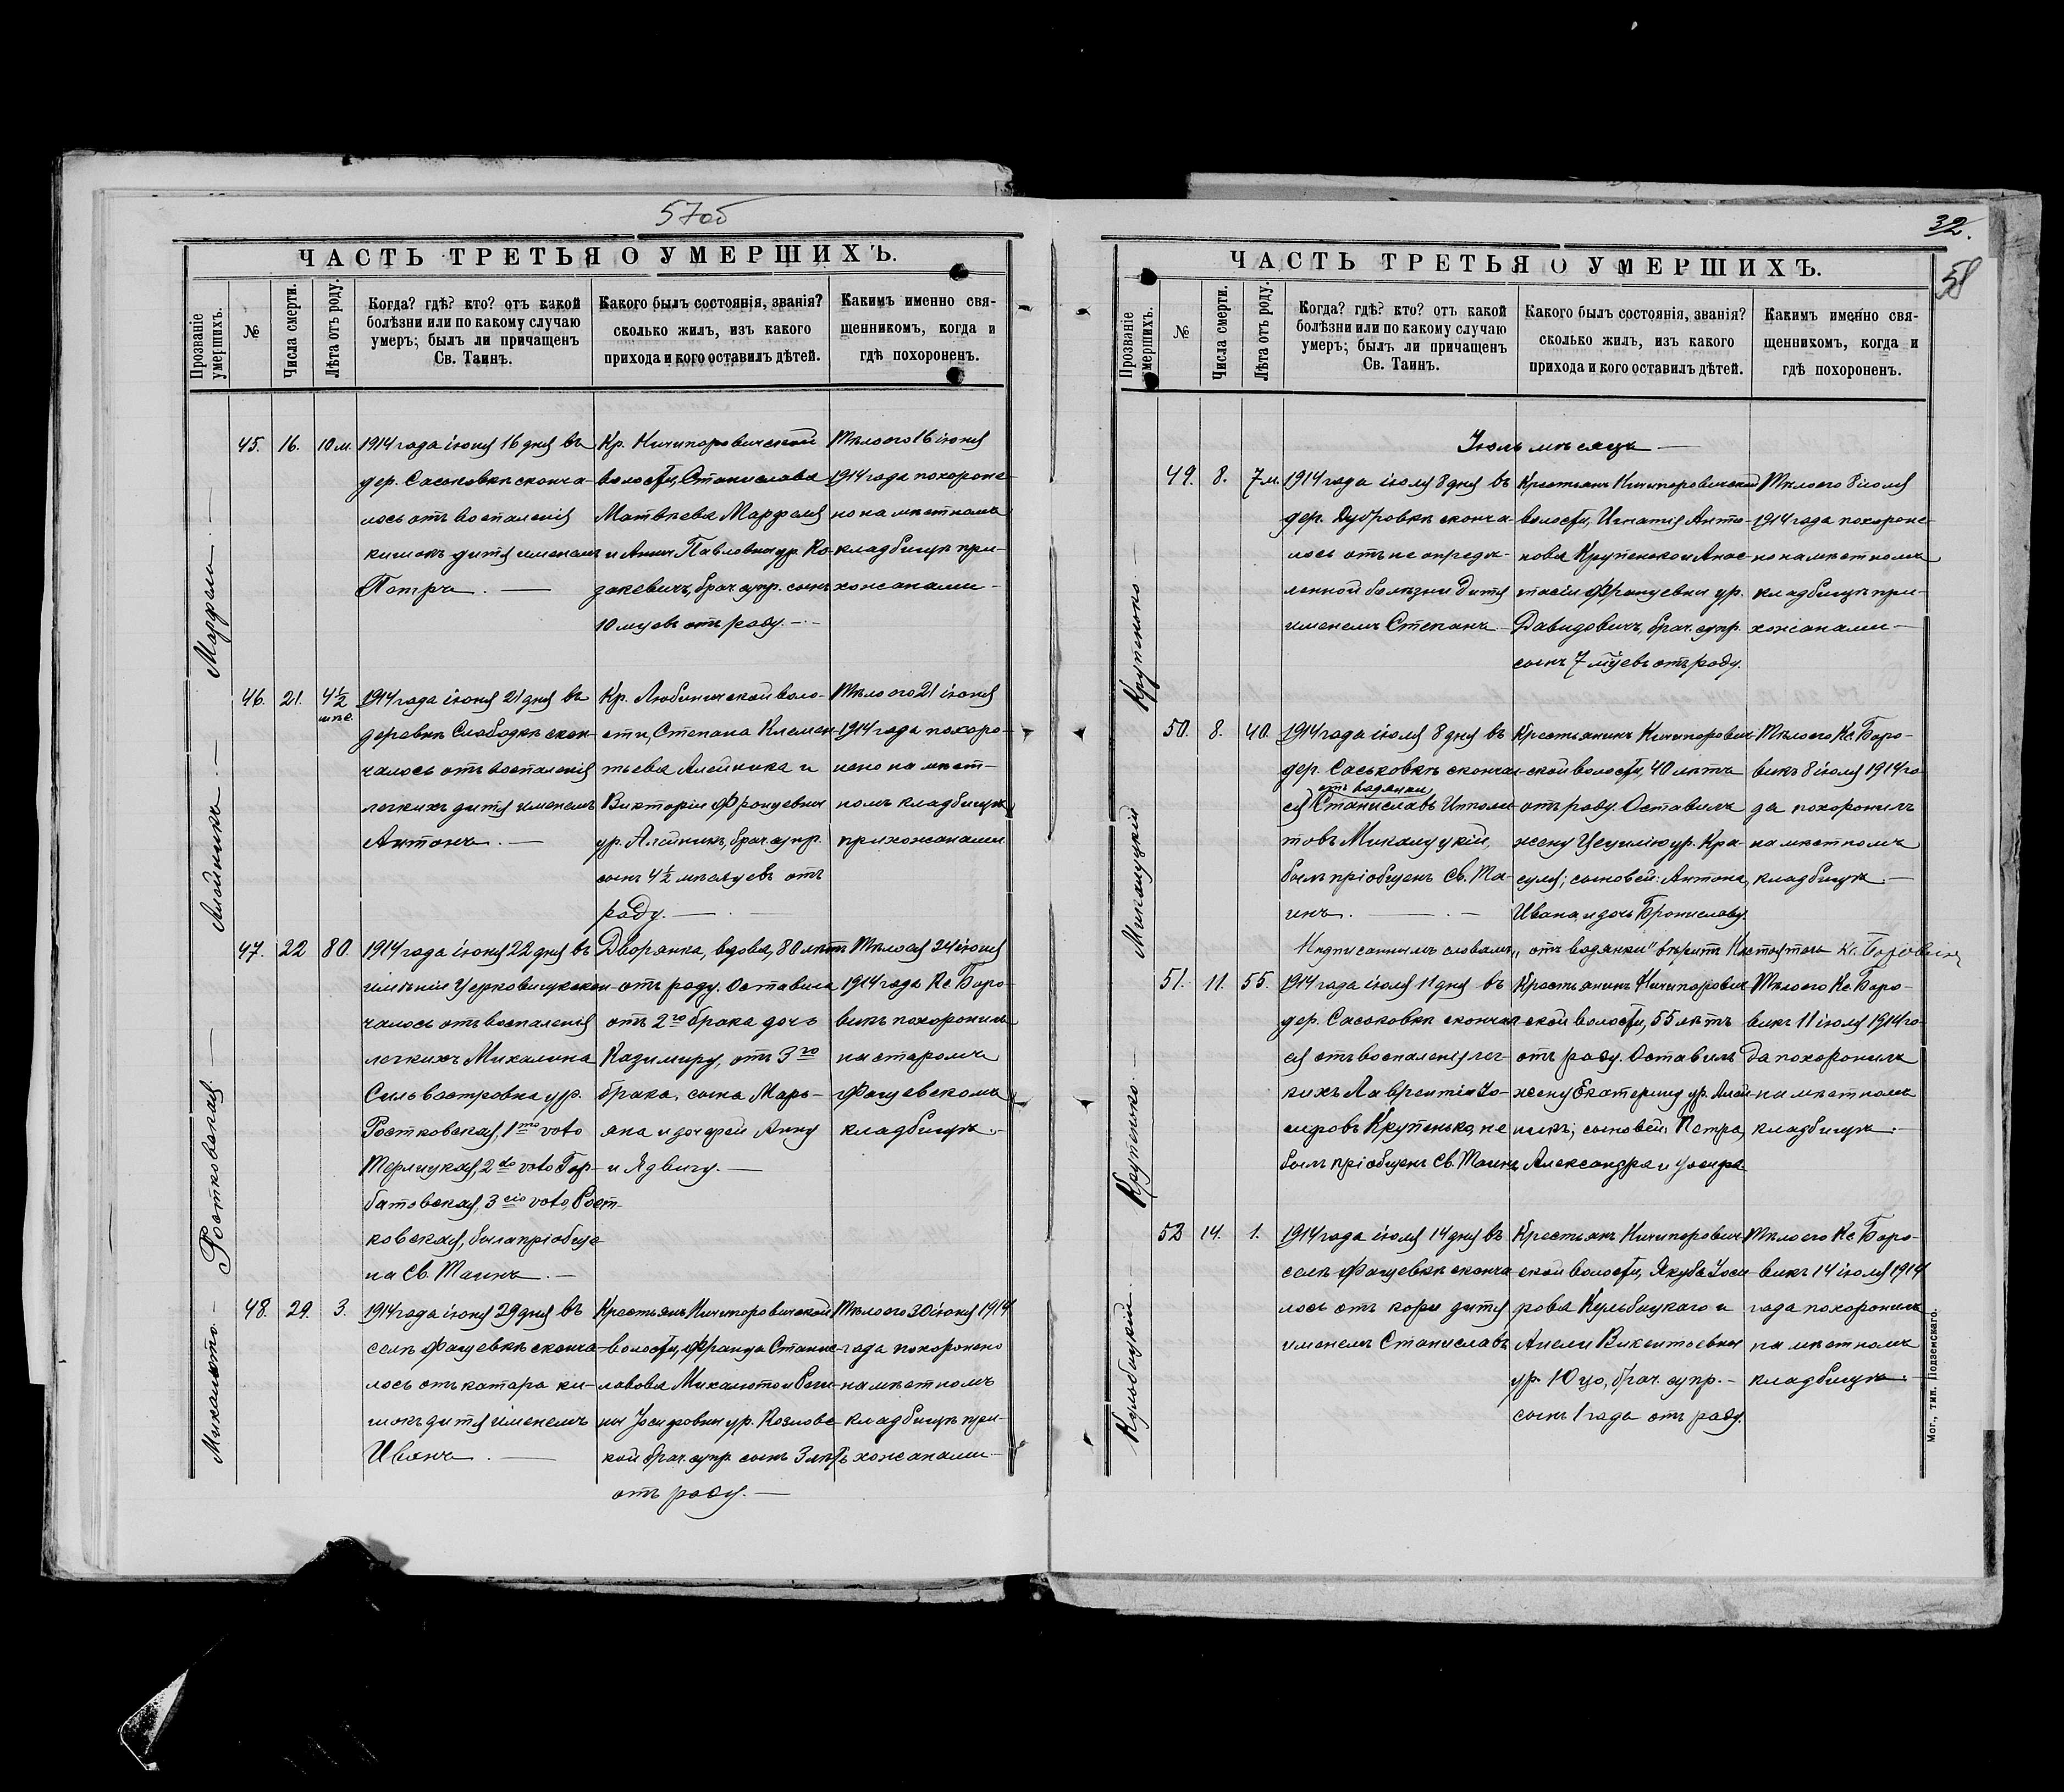 57об
ЧАСТЬ ТРЕТЬЯ О УМЕРШИХЪ.
Прозваніе умершихъ.
№
Числа смерти.
Лѣта отъ роду.
Когда? гдѣ? кто? отъ какой
болѣзни или по какому случаю
умеръ; былъ ли причащенъ
Св. Таинъ.
Какого былъ состоянія, званія?
сколько жилъ, изъ какого
прихода и кого оставилъ дѣтей.
Какимъ именно свя-
щенникомъ, когда и
гдѣ похороненъ.
Марфель
45. 16. 10 м.
1914 года іюня 16 дня въ
дер. Саськовкѣ сконча-
лось отъ воспаленія
кишокъ дитя именемъ
Петръ.
Кр. Ничипоровичской
волости, Станислава
Матвѣева Марфеля
и Анны Павловны ур. Ко-
закевичъ, брач. супр. сынъ
10 м-цевъ отъ роду.
Тѣло его 16 іюня
1914 года похороне-
но на мѣстномъ
кладбищѣ при-
хожанами
Алейникъ
46. 21. 4½ мѣс.
1914 года іюня 21 дня въ
деревнѣ Слободкѣ скон-
чалось отъ воспаленія
легкихъ дитя именемъ
Антонъ.
Кр. Любоничской воло-
сти, Степана Клемен-
тьева Алейника и
Викторіи Францевны
ур. Алейникъ, брач. супр.
сынъ 4½ мѣсяцевъ отъ
роду.
Тѣло его 21 іюня
1914 года похоро-
нено на мѣст-
номъ кладбищѣ
прихожанами
Ростковская
47. 22 80.
1914 года іюня 22 дня въ
имѣнія Церковищѣ скон-
чалось отъ воспаленія
легкихъ Михалина
Сильвестровна ур.
Ростковская, 1mo voto
Терлицкая, 2do voto Гор-
батовская, 3cio voto, Рост-
ковская, была пріобще-
на Св. Таинъ.
Дворянка, вдова, 80 лѣтъ
отъ роду. Оставила
отъ 2го брака дочь
Казимиру, отъ 3го
брака, сына Марь-
яна и дочерей Анну
и Ядвигу.
Тѣло ея 24 іюня
1914 года Кс. Боро-
викъ похоронилъ
на старомъ
Фащевскомъ
кладбищѣ.
Михалюто
48. 29. 3.
1914 года іюня 29 дня въ
селѣ Фащевкѣ сконча-
лось отъ катара ки-
шокъ дитя именемъ
Иванъ.
Крестьянъ Ничипоровичской
волости, Франца Станис-
лавова Михалюто и Реги-
ны Іосифовны ур. Козловс-
кой брач. супр. сынъ 3 лѣтъ
отъ роду.
Тѣло его 30 іюня 1914
года похоронено
на мѣстномъ
кладбищѣ при-
хожанами
32.
58
ЧАСТЬ ТРЕТЬЯ О УМЕРШИХЪ.
Прозваніе умершихъ.
№
Числа смерти.
Лѣта отъ роду.
Когда? гдѣ? кто? отъ какой
болѣзни или по какому случаю
умеръ; былъ ли причащенъ
Св. Таинъ.
Какого былъ состоянія, званія?
сколько жилъ, изъ какого
прихода и кого оставилъ дѣтей.
Какимъ именно свя-
щенникомъ, когда и
гдѣ похороненъ.
Іюль мѣсяцъ
Крупенько
49. 8. 7 м.
1914 года іюля 8 дня въ
дер. Дубровкѣ сконча-
лось отъ не опредѣ-
ленной болѣзни дитя
именемъ Степанъ
Крестьянъ Ничипоровичской
волости, Игнатія Анто-
нова Крупенько и Анас-
тасіи Францевны ур.
Давидовичъ, брач. супр.
сынъ 7 м-цевъ отъ роду.
Тѣло его 8 іюля
1914 года похороне-
но на мѣстномъ
кладбищѣ при-
хожанами
Микалуцкій
50. 8. 40.
1914 года іюля 8 дня въ
дер. Саськовкѣ скончал-
отъ водянки
ся Станиславъ Иппoли-
товъ Микалуцкій,
былъ пріобщенъ Св. Та-
инъ.
Крестьянинъ Ничипорович-
ской волости, 40 лѣтъ
отъ роду. Оставилъ
жену Цецилію ур. Кра-
суля; сыновей: Антона,
Ивана и дочь Брониславу.
Тѣло его Кс. Боро-
викъ 8 іюля 1914 го-
да похоронилъ
на мѣстномъ
кладбищѣ.
Надписаннымъ словамъ „отъ водянки" вѣрить Настоятель Кс. Боровикъ
Крупенько
51. 11. 55.
1914 года іюля 11 дня въ
дер. Саськовкѣ скончал-
ся отъ воспаленія лег-
кихъ Лаврентій Іо-
сифовъ Крупенько, не
былъ пріобщенъ Св. Таинъ
Крестьянинъ Ничипорович-
ской волости, 55 лѣтъ
отъ роду. Оставилъ
жену Екатерину ур. Алей-
никъ; сыновей: Петра,
Александра и Іосифа
Тѣло его Кс. Боро-
викъ 11 іюля 1914 го-
да похоронилъ
на мѣстномъ
кладбищѣ.
Кульбицкій
52 14. 1.
1914 года іюля 14 дня въ
селѣ Фащевкѣ сконча-
лось отъ кори дитя
именемъ Станиславъ
Крестьянъ Ничипорович-
ской волости, Якуба Іоси-
фова Кульбицкаго и
Анели Викентьевны
ур. Юцо, брач. супр.
сынъ 1 года отъ роду.
Тѣло его Кс. Боро-
викъ 14 іюля 1914
года похоронилъ
на мѣстномъ
кладбищѣ
Мог., тип. Подземскаго.